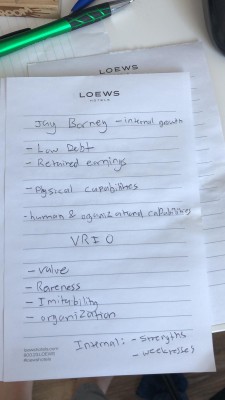 LOEWS
LOEWS
HOTELS
Jay Barney - internal growth
- Low Debt
- Retained earnings
- Physical capabilities
- human & organizational capabilities
VRIO
- Value
- Rareness
- Imitability
- organization
Internal: - Strengths
- weaknesses